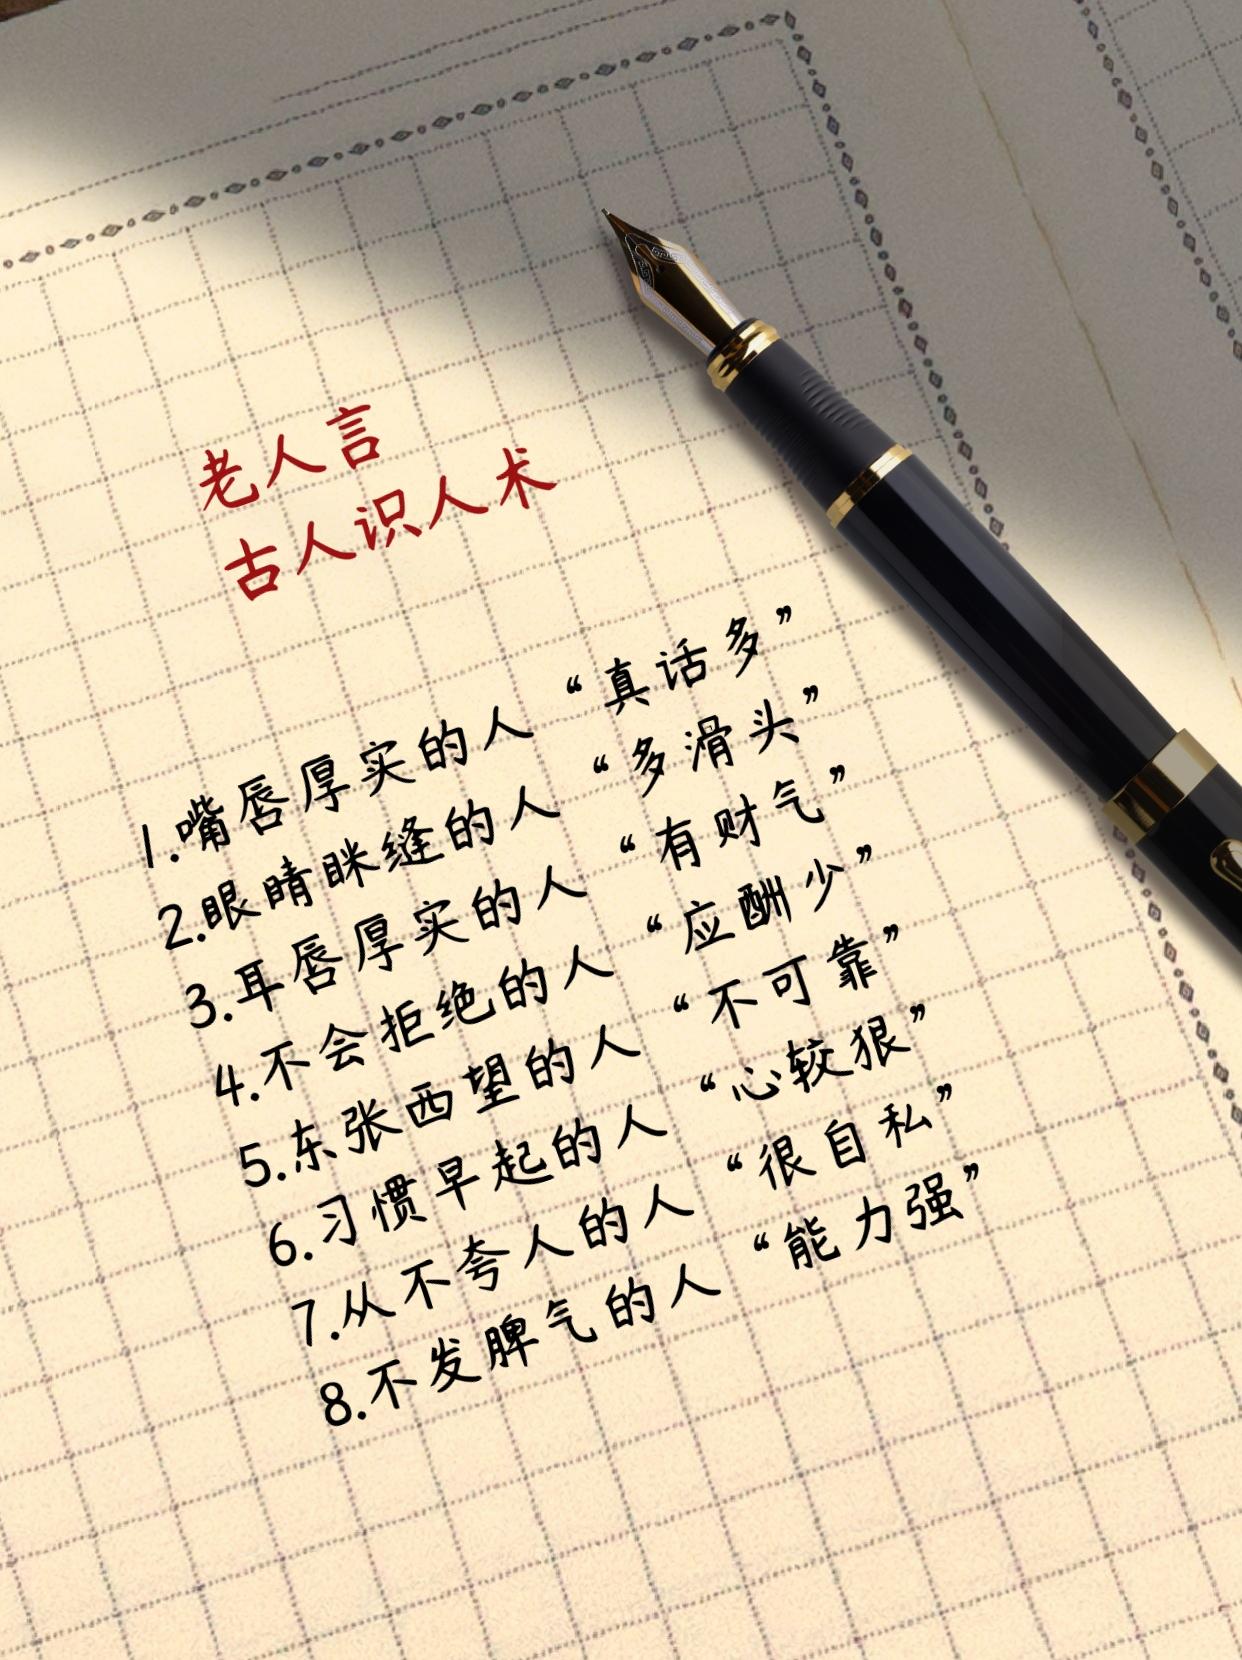 老人言
古人识人术
1.嘴唇厚实的人“真话多”
2.眼睛眯缝的人“多滑头”
3.耳唇厚实的人“有财气”
4.不会拒绝的人“应酬少”
5.东张西望的人“不可靠”
6.习惯早起的人“心较狠”
7.从不夸人的人“很自私”
8.不发脾气的人“能力强”